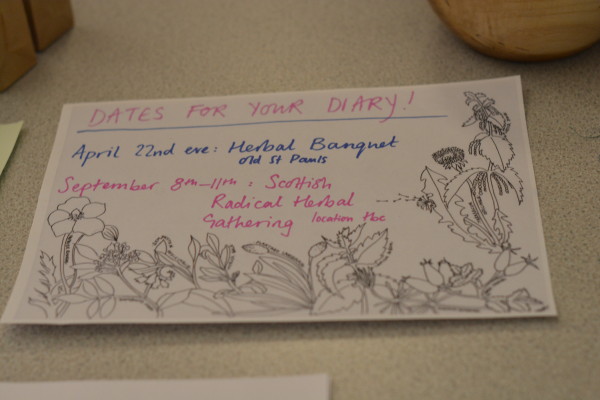 DATES FOR YOUR DIARY!
April 22nd eve: Herbal Banquet
old St Pauls
September 8th-11th: Scottish
Radical Herbal
Gathering location tbc